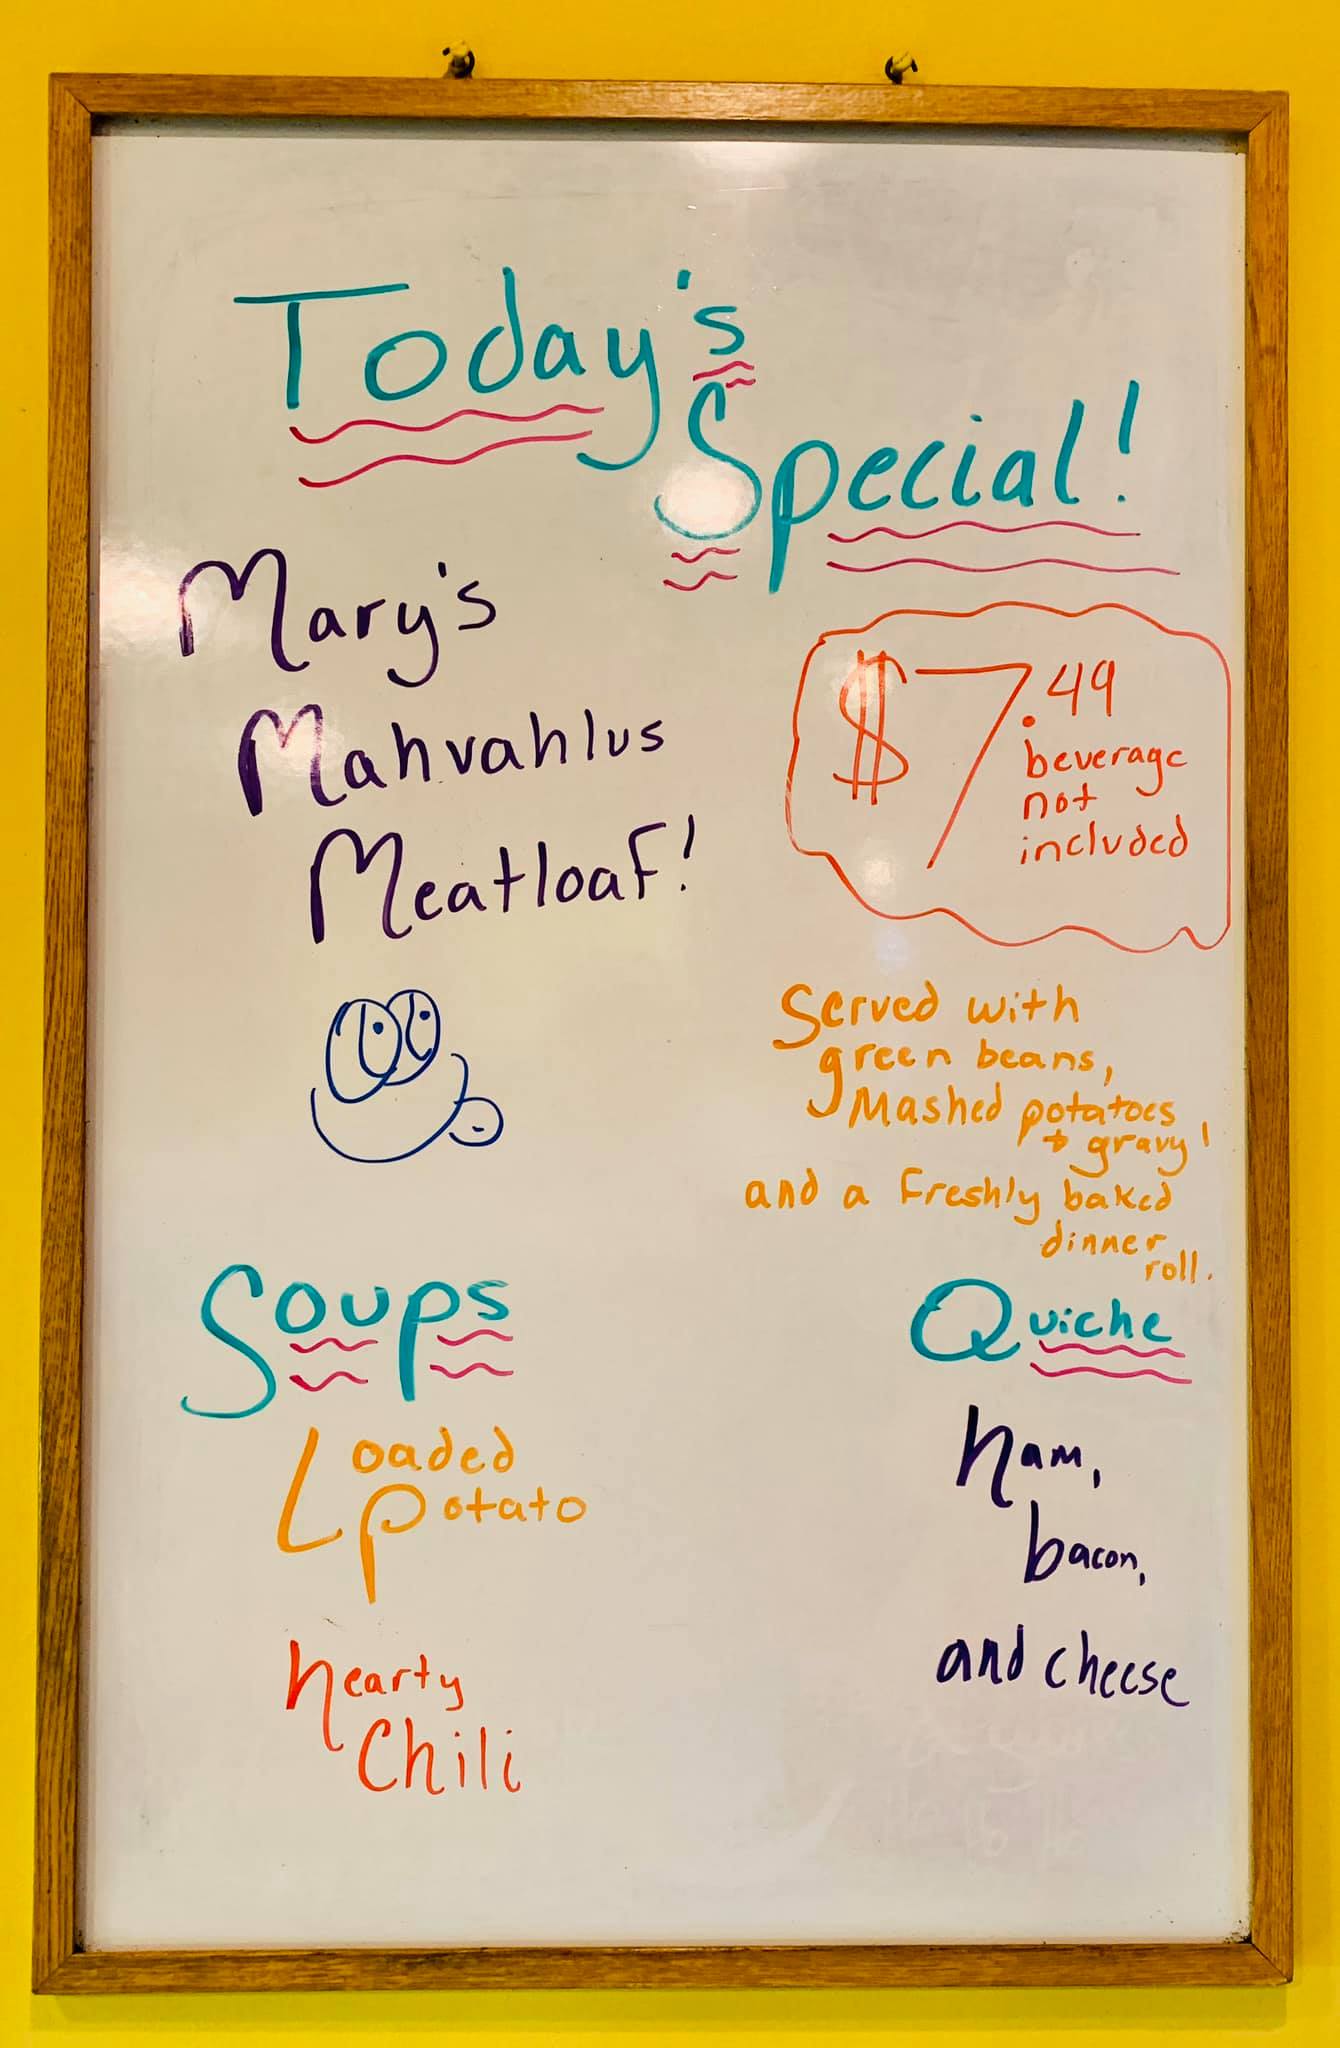 Today's
Special!
Mary's
Mahvahlus
Meatloaf!
$7.49
beverage
not
included
Served with
green beans,
Mashed potatoes
+ gravy!
and a freshly baked
dinner
roll.
Soups
Loaded
Potato
hearty
Chili
Quiche
ham,
bacon,
and cheese